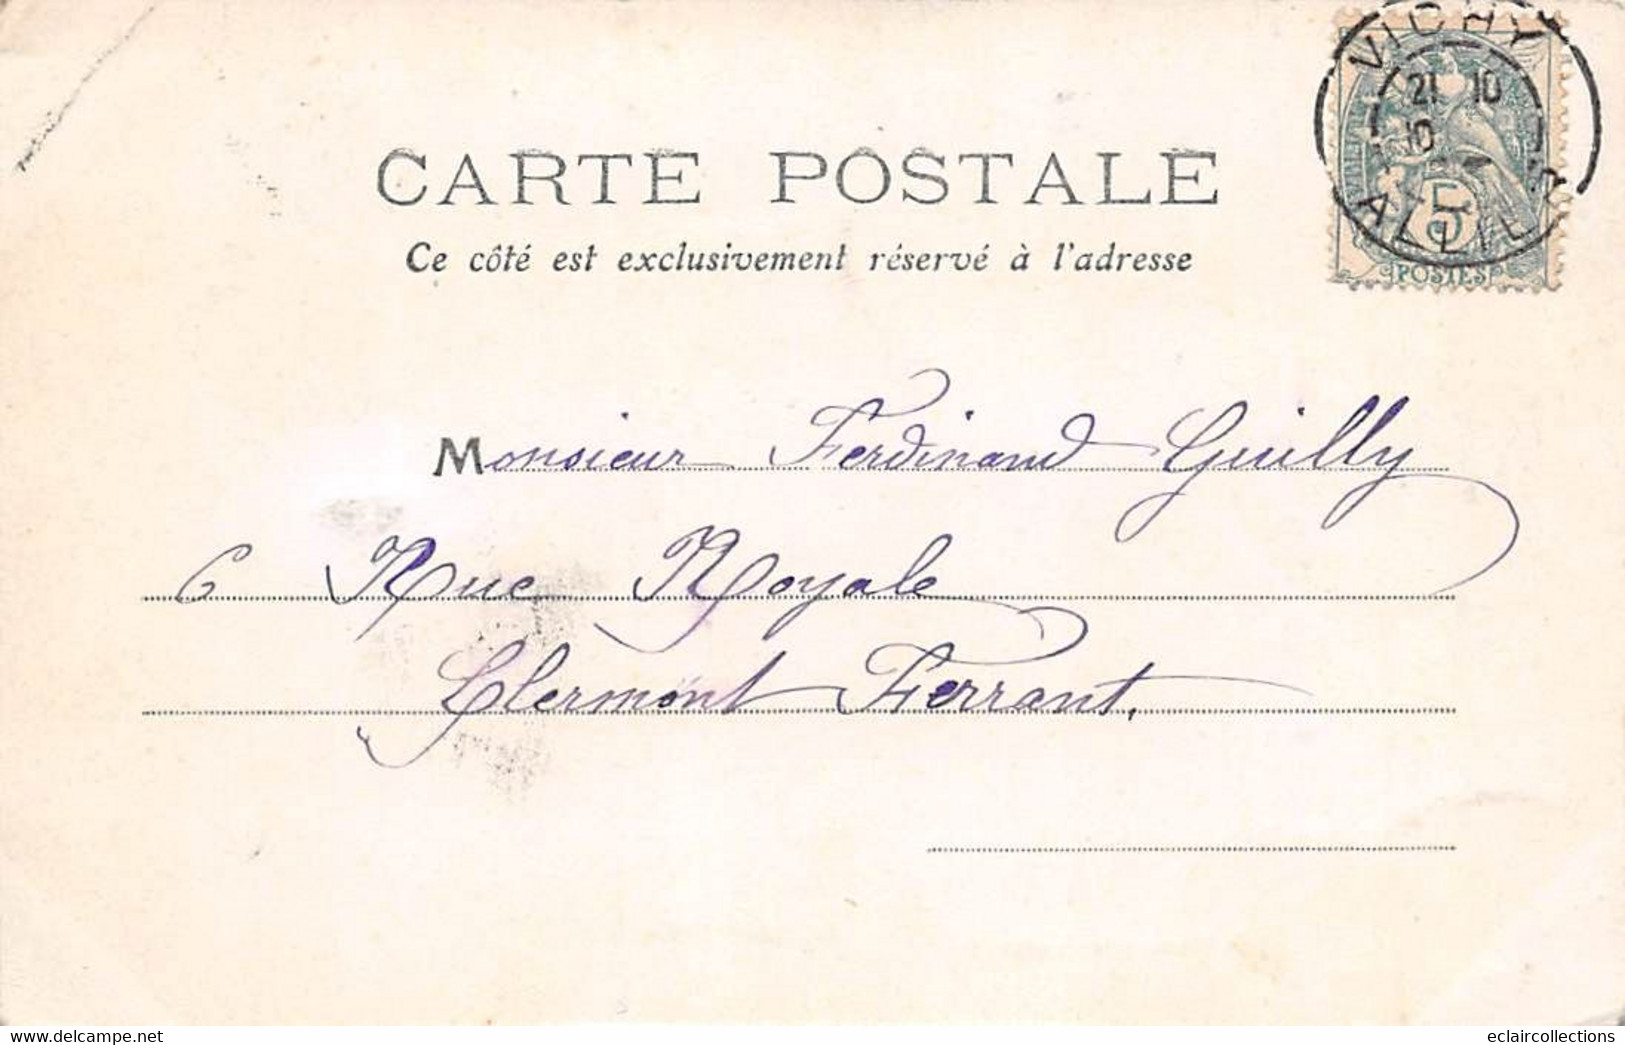 VICHY
21 10
ALLIER
5
POSTES
CARTE POSTALE
Ce côté est exclusivement réservé à l'adresse
Monsieur Ferdinand Guilly
6 Rue Royale
Clermont Ferrant.
delcampe.net
eclaircollections